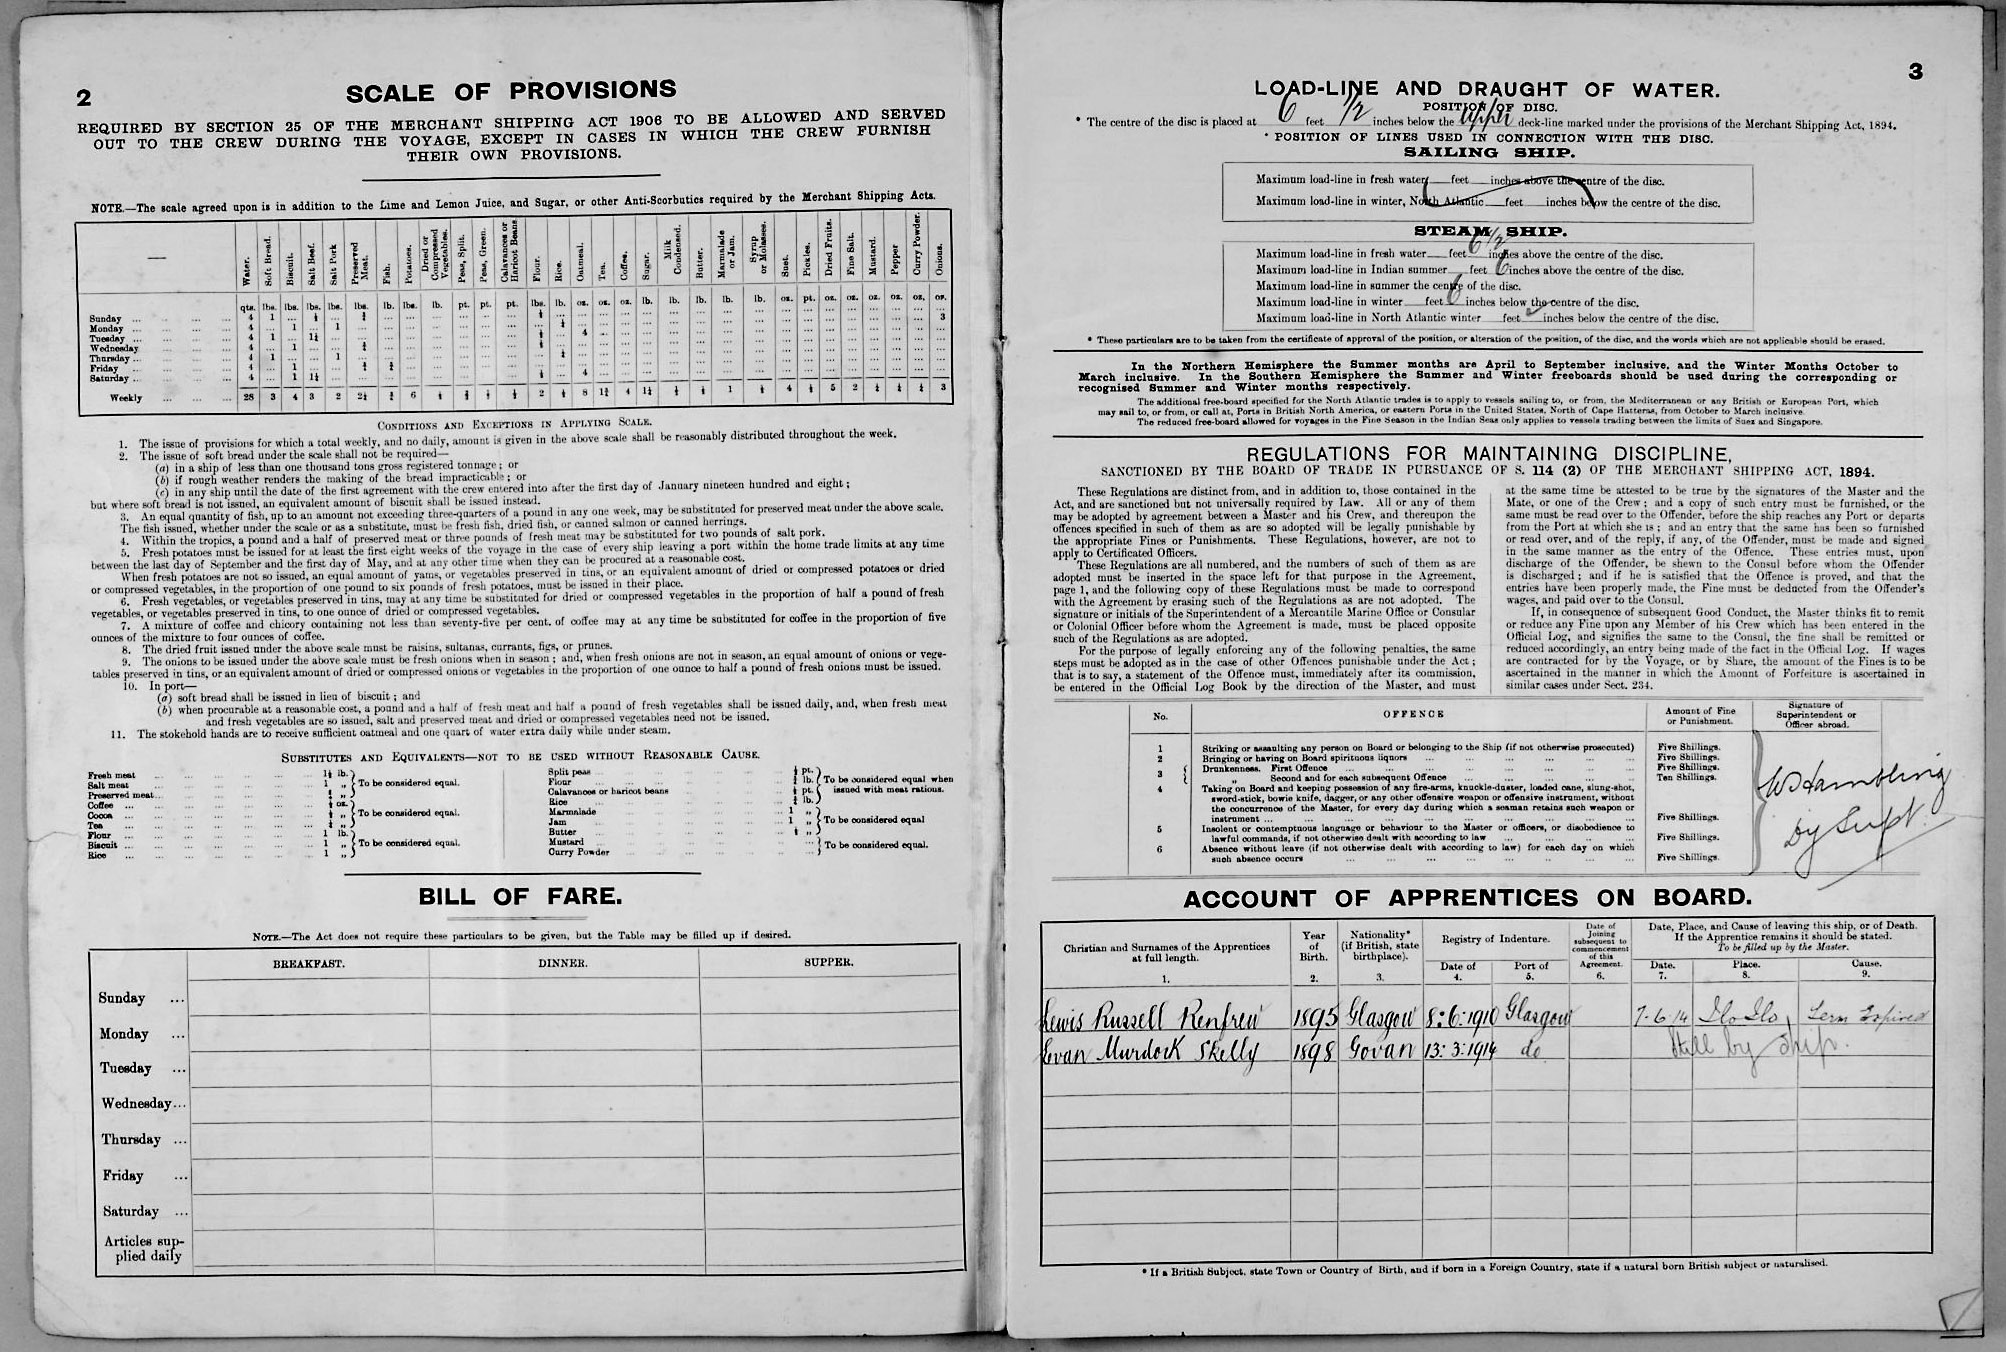 2
SCALE OF PROVISIONS
REQUIRED BY SECTION 25 OF THE MERCHANT SHIPPING ACT 1906 TO BE ALLOWED AND SERVED
OUT TO THE CREW DURING THE VOYAGE, EXCEPT IN CASES IN WHICH THE CREW FURNISH
THEIR OWN PROVISIONS.
NOTE.—The scale agreed upon is in addition to the Lime and Lemon Juice, and Sugar, or other Anti-Scorbutics required by the Merchant Shipping Acts.
— Water. Soft Bread. Biscuit. Salt Beef. Salt Pork Preserved Meat. Fish. Potatoes. Dried or Compressed Vegetables. Peas, Split. Peas, Green. Calavances or Haricot Beans Flour. Rice. Oatmeal. Tea. Coffee. Sugar. Milk Condensed. Butter. Marmalade or Jam. Syrup or Molasses. Suet. Pickles. Dried Fruits. Fine Salt. Mustard. Pepper Curry Powder. Onions.
qts. lbs. lbs. lbs. lbs. lbs. lb. lbs. lb. pt. pt. pt. lbs. lb. oz. oz. oz. lb. lb. lb. lb. lb. oz. pt. oz. oz. oz. oz. oz. oz.
Sunday ... 4 1 ... 3
Monday ... 4 ... 1 ... 1
Tuesday ... 4 1 ... 4
Wednesday 4 ... 1
Thursday ... 4 1 ... 1
Friday ... 4 ... 1
Saturday ... 4 ... 1 ... 4
Weekly ... 28 3 4 3 2 6 2 8 4 1 4 5 2 3
CONDITIONS AND EXCEPTIONS IN APPLYING SCALE.
1. The issue of provisions for which a total weekly, and no daily, amount is given in the above scale shall be reasonably distributed throughout the week.
2. The issue of soft bread under the scale shall not be required—
(a) in a ship of less than one thousand tons gross registered tonnage; or
(b) if rough weather renders the making of the bread impracticable; or
(c) in any ship until the date of the first agreement with the crew entered into after the first day of January nineteen hundred and eight;
but where soft bread is not issued, an equivalent amount of biscuit shall be issued instead.
3. An equal quantity of fish, up to an amount not exceeding three-quarters of a pound in any one week, may be substituted for preserved meat under the above scale.
The fish issued, whether under the scale or as a substitute, must be fresh fish, dried fish, or canned salmon or canned herrings.
4. Within the tropics, a pound and a half of preserved meat or three pounds of fresh meat may be substituted for two pounds of salt pork.
5. Fresh potatoes must be issued for at least the first eight weeks of the voyage in the case of every ship leaving a port within the home trade limits at any time
between the last day of September and the first day of May, and at any other time when they can be procured at a reasonable cost.
When fresh potatoes are not so issued, an equal amount of yams, or vegetables preserved in tins, or an equivalent amount of dried or compressed potatoes or dried
or compressed vegetables, in the proportion of one pound to six pounds of fresh potatoes, must be issued in their place.
6. Fresh vegetables, or vegetables preserved in tins, may at any time be substituted for dried or compressed vegetables in the proportion of half a pound of fresh
vegetables, or vegetables preserved in tins, to one ounce of dried or compressed vegetables.
7. A mixture of coffee and chicory containing not less than seventy-five per cent. of coffee may at any time be substituted for coffee in the proportion of five
ounces of the mixture to four ounces of coffee.
8. The dried fruit issued under the above scale must be raisins, sultanas, currants, figs, or prunes.
9. The onions to be issued under the above scale must be fresh onions when in season; and, when fresh onions are not in season, an equal amount of onions or vege-
tables preserved in tins, or an equivalent amount of dried or compressed onions or vegetables in the proportion of one ounce to half a pound of fresh onions must be issued.
10. In port—
(a) soft bread shall be issued in lieu of biscuit; and
(b) when procurable at a reasonable cost, a pound and a half of fresh meat and half a pound of fresh vegetables shall be issued daily, and, when fresh meat
and fresh vegetables are so issued, salt and preserved meat and dried or compressed vegetables need not be issued.
11. The stokehold hands are to receive sufficient oatmeal and one quart of water extra daily while under steam.
SUBSTITUTES AND EQUIVALENTS—NOT TO BE USED WITHOUT REASONABLE CAUSE.
Fresh meat ... lb.
Salt meat ... 1 „ To be considered equal.
Preserved meat ... „
Coffee ... oz.
Cocoa ... „ To be considered equal.
Tea ... „
Flour ... 1 lb.
Biscuit ... 1 „ To be considered equal.
Rice ... 1 „
Split peas ... pt.
Flour ... lb. To be considered equal when
Calavances or haricot beans ... pt. issued with meat rations.
Rice ... lb.
Marmalade ... 1 „
Jam ... 1 „ To be considered equal
Butter ... „
Mustard ... To be considered equal.
Curry Powder ...
BILL OF FARE.
NOTE.—The Act does not require these particulars to be given, but the Table may be filled up if desired.
BREAKFAST. DINNER. SUPPER.
Sunday ...
Monday ...
Tuesday ...
Wednesday ...
Thursday ...
Friday ...
Saturday ...
Articles sup-
plied daily
3
LOAD-LINE AND DRAUGHT OF WATER.
POSITION OF DISC.
* The centre of the disc is placed at 6 feet 1/2 inches below the Upper deck-line marked under the provisions of the Merchant Shipping Act, 1894.
* POSITION OF LINES USED IN CONNECTION WITH THE DISC.
SAILING SHIP.
Maximum load-line in fresh water feet inches above the centre of the disc.
Maximum load-line in winter, North Atlantic feet inches below the centre of the disc.
STEAM SHIP.
Maximum load-line in fresh water feet 6 1/2 inches above the centre of the disc.
Maximum load-line in Indian summer feet 6 inches above the centre of the disc.
Maximum load-line in summer the centre of the disc.
Maximum load-line in winter feet 6 inches below the centre of the disc.
Maximum load-line in North Atlantic winter feet inches below the centre of the disc.
* These particulars are to be taken from the certificate of approval of the position, or alteration of the position, of the disc, and the words which are not applicable should be erased.
In the Northern Hemisphere the Summer months are April to September inclusive, and the Winter Months October to
March inclusive. In the Southern Hemisphere the Summer and Winter freeboards should be used during the corresponding or
recognised Summer and Winter months respectively.
The additional free-board specified for the North Atlantic trades is to apply to vessels sailing to, or from, the Mediterranean or any British or European Port, which
may sail to, or from, or call at, Ports in British North America, or eastern Ports in the United States, North of Cape Hatteras, from October to March inclusive.
The reduced free-board allowed for voyages in the Fine Season in the Indian Seas only applies to vessels trading between the limits of Suez and Singapore.
REGULATIONS FOR MAINTAINING DISCIPLINE,
SANCTIONED BY THE BOARD OF TRADE IN PURSUANCE OF S. 114 (2) OF THE MERCHANT SHIPPING ACT, 1894.
These Regulations are distinct from, and in addition to, those contained in the
Act, and are sanctioned but not universally required by Law. All or any of them
may be adopted by agreement between a Master and his Crew, and thereupon the
offences specified in such of them as are so adopted will be legally punishable by
the appropriate Fines or Punishments. These Regulations, however, are not to
apply to Certificated Officers.
These Regulations are all numbered, and the numbers of such of them as are
adopted must be inserted in the space left for that purpose in the Agreement,
page 1, and the following copy of these Regulations must be made to correspond
with the Agreement by erasing such of the Regulations as are not adopted. The
signature or initials of the Superintendent of a Mercantile Marine Office or Consular
or Colonial Officer before whom the Agreement is made, must be placed opposite
such of the Regulations as are adopted.
For the purpose of legally enforcing any of the following penalties, the same
steps must be adopted as in the case of other Offences punishable under the Act;
that is to say, a statement of the Offence must, immediately after its commission,
be entered in the Official Log Book by the direction of the Master, and must
at the same time be attested to be true by the signatures of the Master and the
Mate, or one of the Crew; and a copy of such entry must be furnished, or the
same must be read over to the Offender, before the ship reaches any Port or departs
from the Port at which she is; and an entry that the same has been so furnished
or read over, and of the reply, if any, of the Offender, must be made and signed
in the same manner as the entry of the Offence. These entries must, upon
discharge of the Offender, be shewn to the Consul before whom the Offender
is discharged; and if he is satisfied that the Offence is proved, and that the
entries have been properly made, the Fine must be deducted from the Offender's
wages, and paid over to the Consul.
If, in consequence of subsequent Good Conduct, the Master thinks fit to remit
or reduce any Fine upon any Member of his Crew which has been entered in the
Official Log, and signifies the same to the Consul, the fine shall be remitted or
reduced accordingly, an entry being made of the fact in the Official Log. If wages
are contracted for by the Voyage, or by Share, the amount of the Fines is to be
ascertained in the manner in which the Amount of Forfeiture is ascertained in
similar cases under Sect. 234.
No. OFFENCE Amount of Fine or Punishment. Signature of Superintendent or Officer abroad.
1 Striking or assaulting any person on Board or belonging to the Ship (if not otherwise prosecuted) Five Shillings.
2 Bringing or having on Board spirituous liquors ... Five Shillings.
3 Drunkenness. First Offence ... Five Shillings.
„ Second and for each subsequent Offence ... Ten Shillings.
4 Taking on Board and keeping possession of any fire-arms, knuckle-duster, loaded cane, slung-shot,
sword-stick, bowie knife, dagger, or any other offensive weapon or offensive instrument, without
the concurrence of the Master, for every day during which a seaman retains such weapon or
instrument ... Five Shillings.
5 Insolent or contemptuous language or behaviour to the Master or officers, or disobedience to
lawful commands, if not otherwise dealt with according to law ... Five Shillings.
6 Absence without leave (if not otherwise dealt with according to law) for each day on which
such absence occurs ... Five Shillings.
W Hambling
Dy Supt.
ACCOUNT OF APPRENTICES ON BOARD.
Christian and Surnames of the Apprentices at full length. 1.
Year of Birth. 2.
Nationality* (if British, state birthplace). 3.
Registry of Indenture.
Date of 4.
Port of 5.
Date of Joining subsequent to commencement of this Agreement. 6.
Date, Place, and Cause of leaving this ship, or of Death.
If the Apprentice remains it should be stated.
To be filled up by the Master.
Date. 7.
Place. 8.
Cause. 9.
Lewis Russell Renfrew 1895 Glasgow 8:6:1910 Glasgow 7-6-14 Ilo Ilo Term Expired
Evan Murdock Skelly 1898 Govan 13:3:1914 do Still by Ship.
* If a British Subject, state Town or Country of Birth, and if born in a Foreign Country, state if a natural born British subject or naturalised.